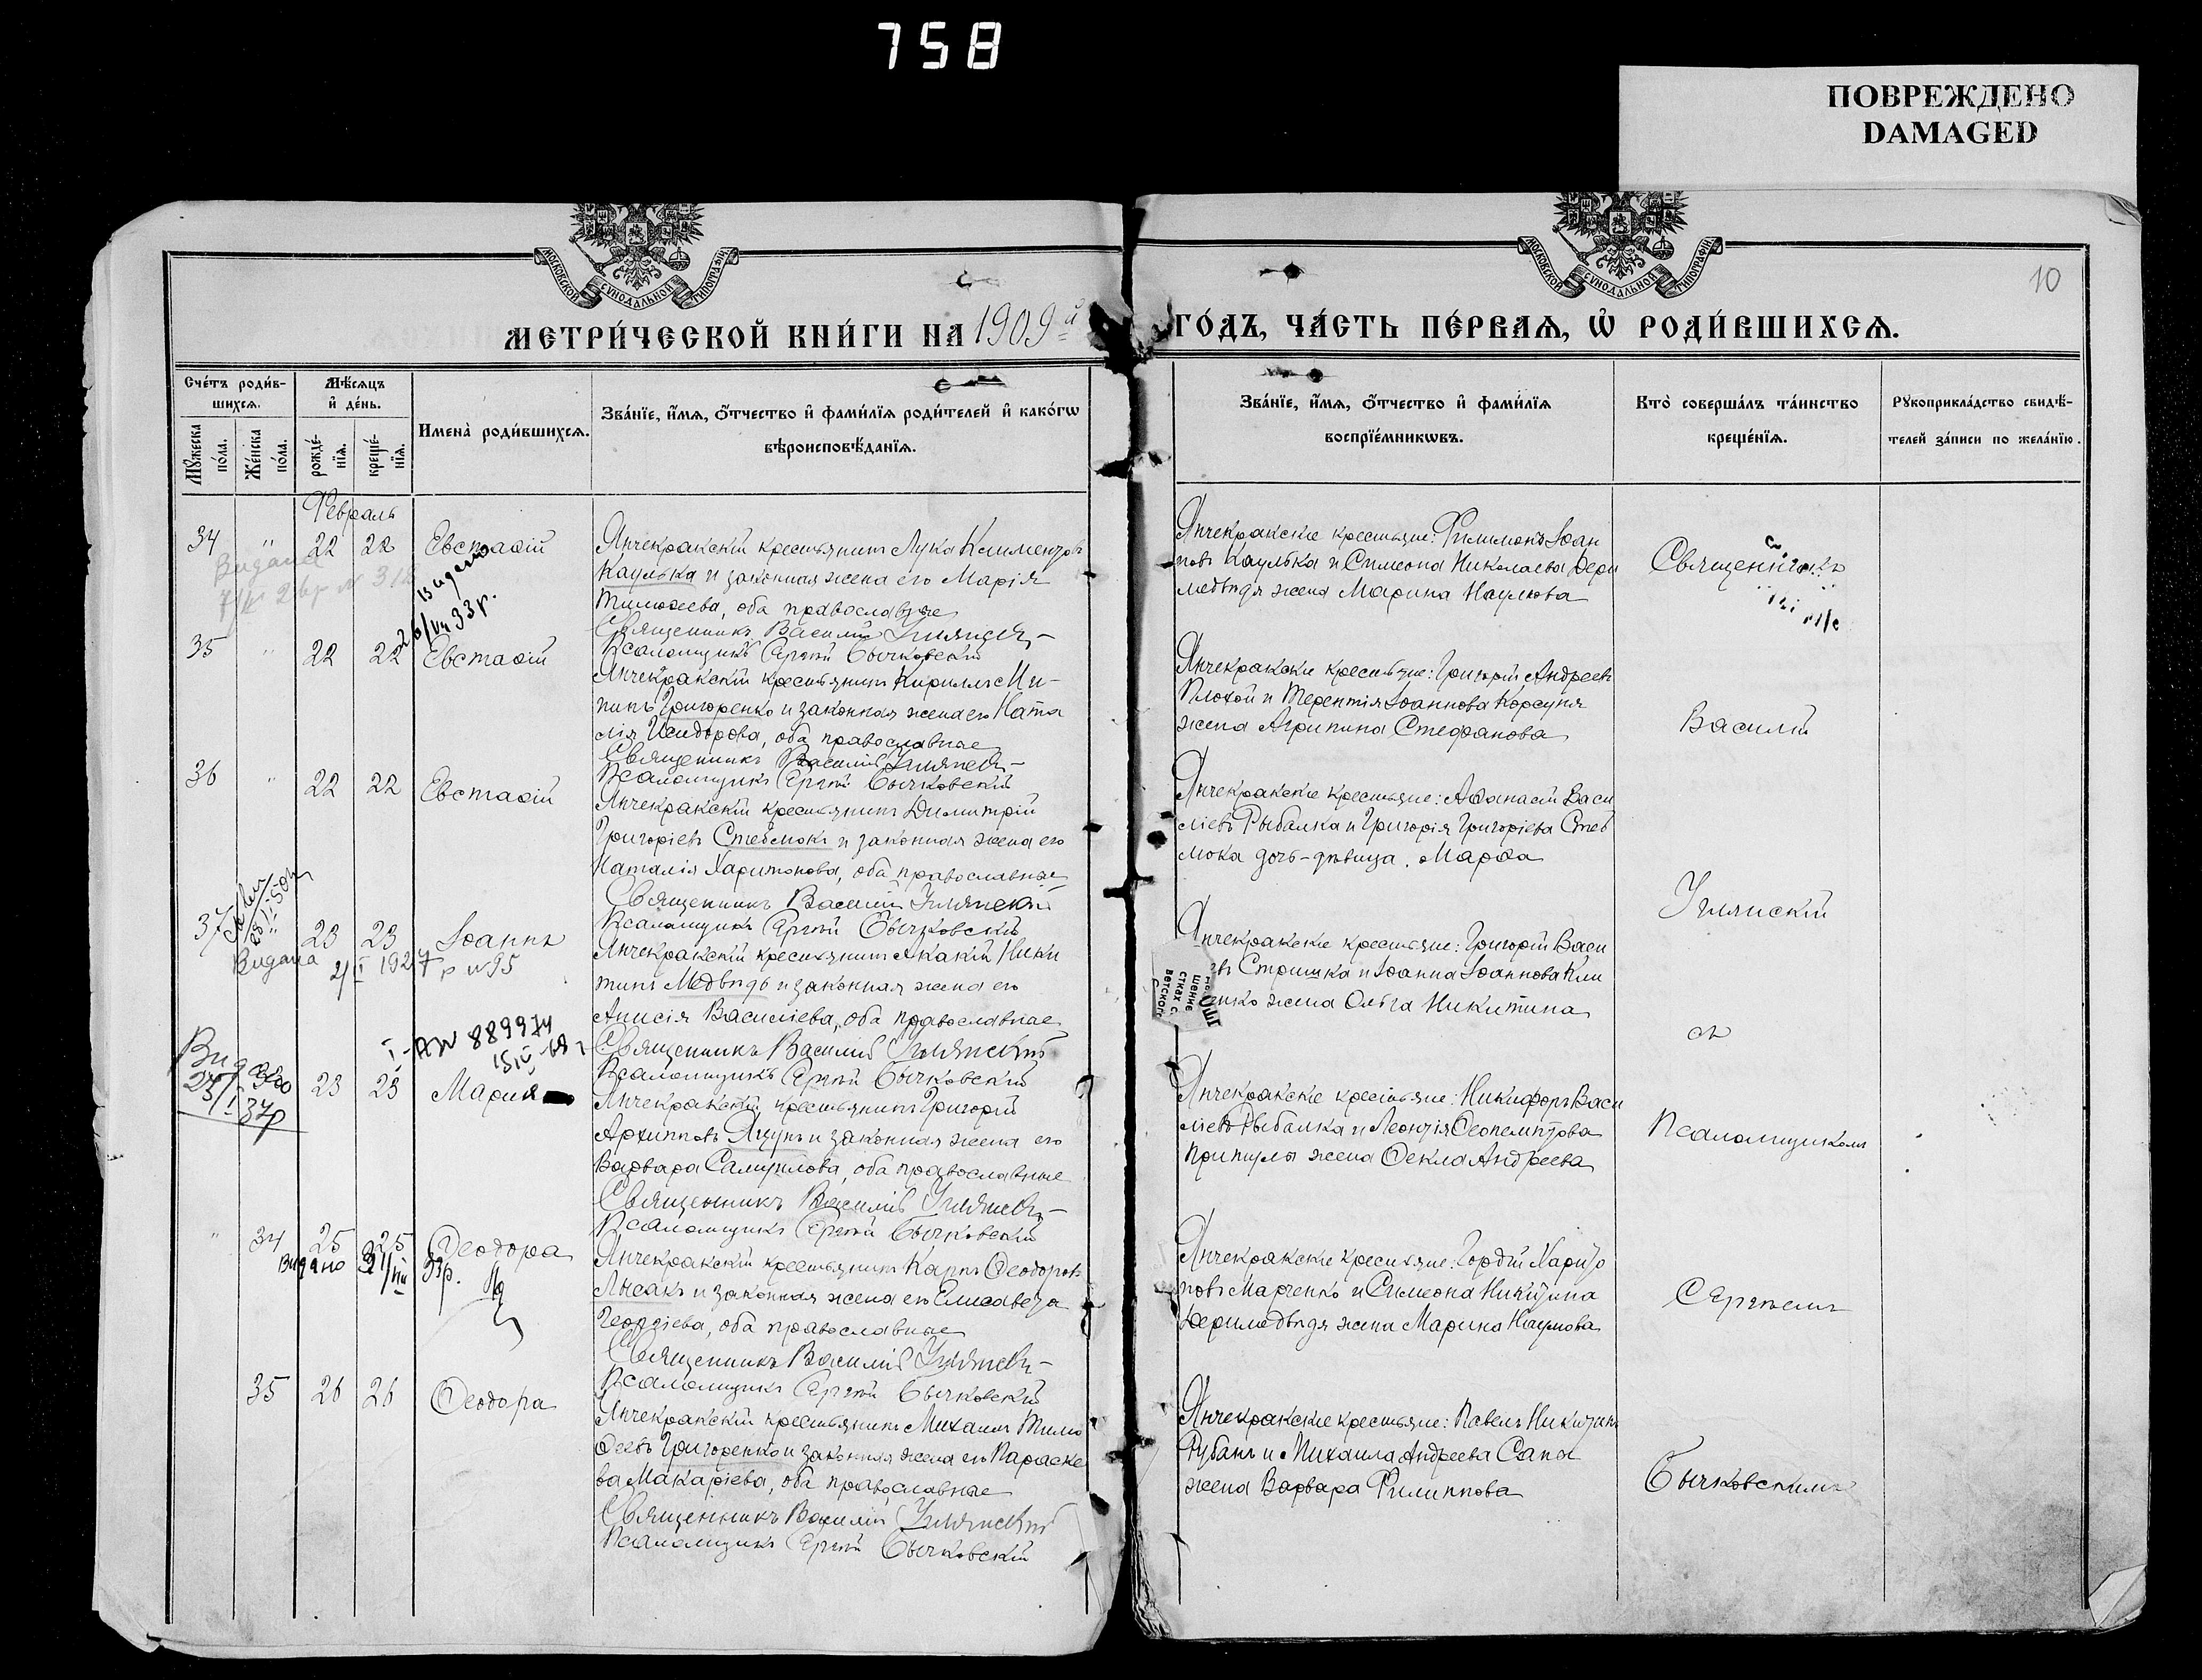 758
ПОВРЕЖДЕНО
DAMAGED
МОСКОВСКОЙ СѴНОДАЛЬНОЙ ТИПОГРАФІИ
МОСКОВСКОЙ СѴНОДАЛЬНОЙ ТИПОГРАФІИ
10
МЕТРИ́ЧЕСКОЙ КНИ́ГИ НА 1909й
ГО́ДЪ, ЧА́СТЬ ПЕ́РВАЯ, Ѡ҆ РОДИ́ВШИХСЯ.
Сче́тъ роди́вшихся.
Мѣ́сяцъ и҆ де́нь.
Мꙋ́жеска по́ла.
Же́нска по́ла.
рожде́нїя.
креще́нїя.
Имена̀ роди́вшихся.
Зва́нїе, и҆́мя, ѻ҆́тчество и҆ фами́лїя роди́телей и҆ како́гѡ
вѣроисповѣ́данїя.
Зва́нїе, и҆́мя, ѻ҆́тчество и҆ фами́лїя
воспрїе́мникѡвъ.
Кто̀ соверша́лъ та́инство
креще́нїя.
Рꙋкоприкла́дство свидѣ́-
телей за́писи по жела́нїю.
Февраль
34 " 22 22 Евстафій
Янчекракскій крестьянинъ Лука Климентовъ
Каулька и законная жена его Марія
Тимофеева, оба православные
Священникъ Василій Углянскій
Псаломщикъ Сергѣй Бычковскій
Янчекракскіе крестьяне: Филимонъ Іоан
новъ Каулька и Симеона Николаева Дери
медвѣдя жена Марина Наумова
Священникъ
Видано
26/VII 33 г.
35 " 22 22 Евстафій
Янчекракскій крестьянинъ Кириллъ Ми-
нинъ Григоренко и законная жена его Ната
лія Исидорова, оба православные
Священникъ Василій Углянскій
Псаломщикъ Сергѣй Бычковскій
Янчекракскіе крестьяне: Григорій Андреевъ
Плохой и Терентія Іоаннова Корсуня
жена Агрипина Стефанова
Василій
36 " 22 22 Евстафій
Янчекракскій крестьянинъ Димитрій
Григоріевъ Стебмокъ и законная жена его
Наталія Харитонова, оба православные
Священникъ Василій Углянскій
Псаломщикъ Сергѣй Бычковскій
Янчекракскіе крестьяне: Афанасій Васи
ліевъ Рыбалка и Григорія Григоріева Стеб
мока дочь-дѣвица Марфа
Углянскій
37 23 23 Іоаннъ
Видана 2/I 1927 р № 95
Янчекракскій крестьянинъ Акакій Ники
тинъ Медвѣдь и законная жена его
Анисія Василіева, оба православные
Священникъ Василій Углянскій
Псаломщикъ Сергѣй Бычковскій
Янчекракскіе крестьяне: Григорій Васи
въ Стришка и Іоанна Іоаннова Кли
енко жена Ольга Никитина
съ
I-АЖ 889974
Видано
37р
23 23 Мария
Янчекракскій крестьянинъ Григорій
Архиповъ Яцунъ и законная жена его
Варвара Самуилова, оба православные
Священникъ Василій Углянскій
Псаломщикъ Сергѣй Бычковскій
Янчекракскіе крестьяне: Никифоръ Васи
ліевъ Рыбалка и Леонтія Феопемптова
Притулы жена Фекла Андреева
Псаломщикомъ
" 34 25 25 Феодора
Видано 31/VII 33р.
Янчекракскій крестьянинъ Карпъ Феодоровъ
Лысакъ и законная жена его Елисавета
Георгіева, оба православные
Священникъ Василій Углянскій
Псаломщикъ Сергѣй Бычковскій
Янчекракскіе крестьяне: Гордій Харито
новъ Марченко и Симеона Никитина
Деримедвѣдя жена Марина Наумова
Сергѣемъ
35 26 26 Феодора
Янчекракскій крестьянинъ Михаилъ Тимо
феевъ Григоренко и законная жена его Параске
ва Макаріева, оба православные
Священникъ Василій Углянскій
Псаломщикъ Сергѣй Бычковскій
Янчекракскіе крестьяне: Павелъ Никитинъ
Рубанъ и Михаила Андреева Сапа
жена Варвара Филиппова
Бычковскимъ